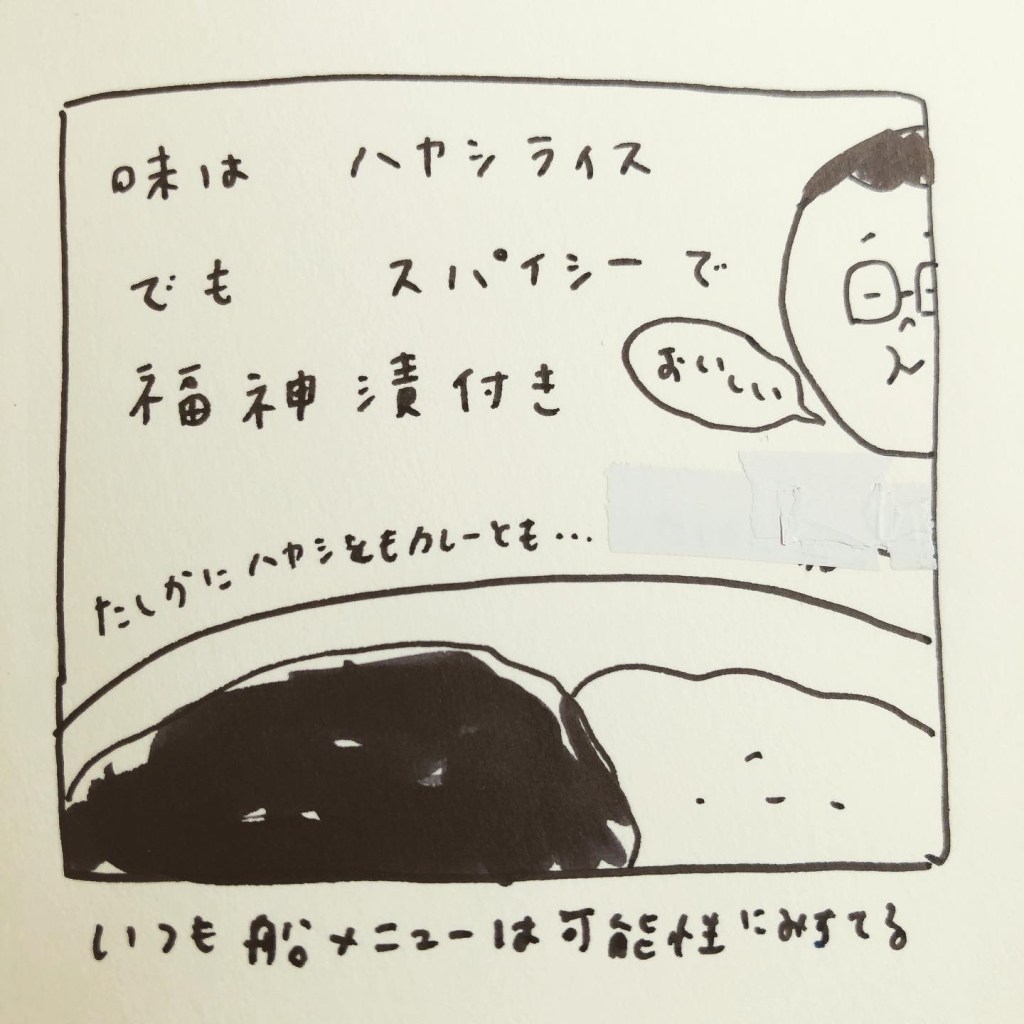 味は ハヤシライス
でも スパイシーで
福神漬付き
おいしい
たしかにハヤシをもカレーとも…
いつも船メニューは可能性にみすてる